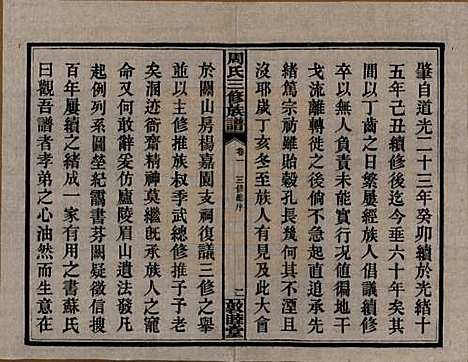 肇自道光二十三年癸卯續於光緒十
五年己丑續修後迄今垂六十年矣其
間以丁齒之日繁屢經族人倡議續修
卒以人不負責無所適從今值徧地干
戈流離失徙之秋若不急起直追承先
緒篤宗祊雖貽穀孔長幾何其不湮且
沒耶歲丁亥冬我族人士有見及此大會
周氏三修族譜
卷一
三修總序
二
敦睦堂
於關山房楊嘉園支祠復議三修之舉
並以主修推族叔季武總修推子子何
矣润迹衙齋精神莫繼旣承族人之寵
命又何敢辭爰仿廬陵眉山遺法發凡
起例列系圖垒紀靄書芬闕疑徵信搜
百年屢續之緒成一家有用之書蘇氏
曰觀吾譜者孝弟之心油然而生意在